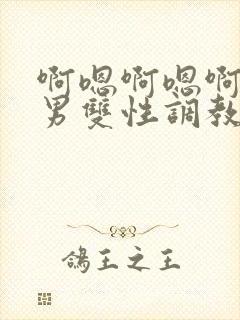 啊嗯啊嗯啊
男雙性調教
鴿王之王